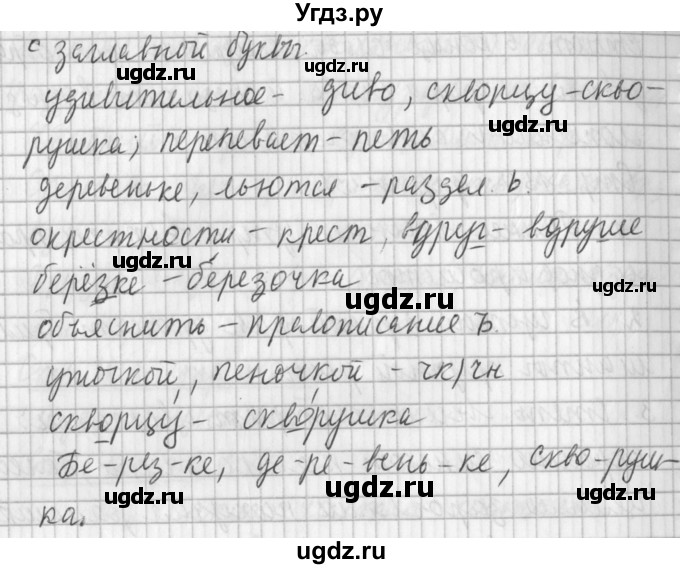 Угдз.ру
с заглавной буквы.
удивительное - диво, скворцу - скво-
рушка; перепевает - петь
деревеньке, льются - раздел. ь.
окрестности - крест, вдруг - вдругие
берёзке - березочка
объяснить - правописание ъ.
уточкой, пеночкой - чк/чн
скворцу́ - скво́рушка
Бе-рёз-ке, де-ре-вень-ке, скво-руш-
ка.
ugdz.ru
ugdz.ru
ugdz.ru
ugdz.ru
ugdz.ru
ugdz.ru
ugdz.ru
ugdz.ru
ugdz.ru
ugdz.ru
ugdz.ru
ugdz.ru
ugdz.ru
ugdz.ru